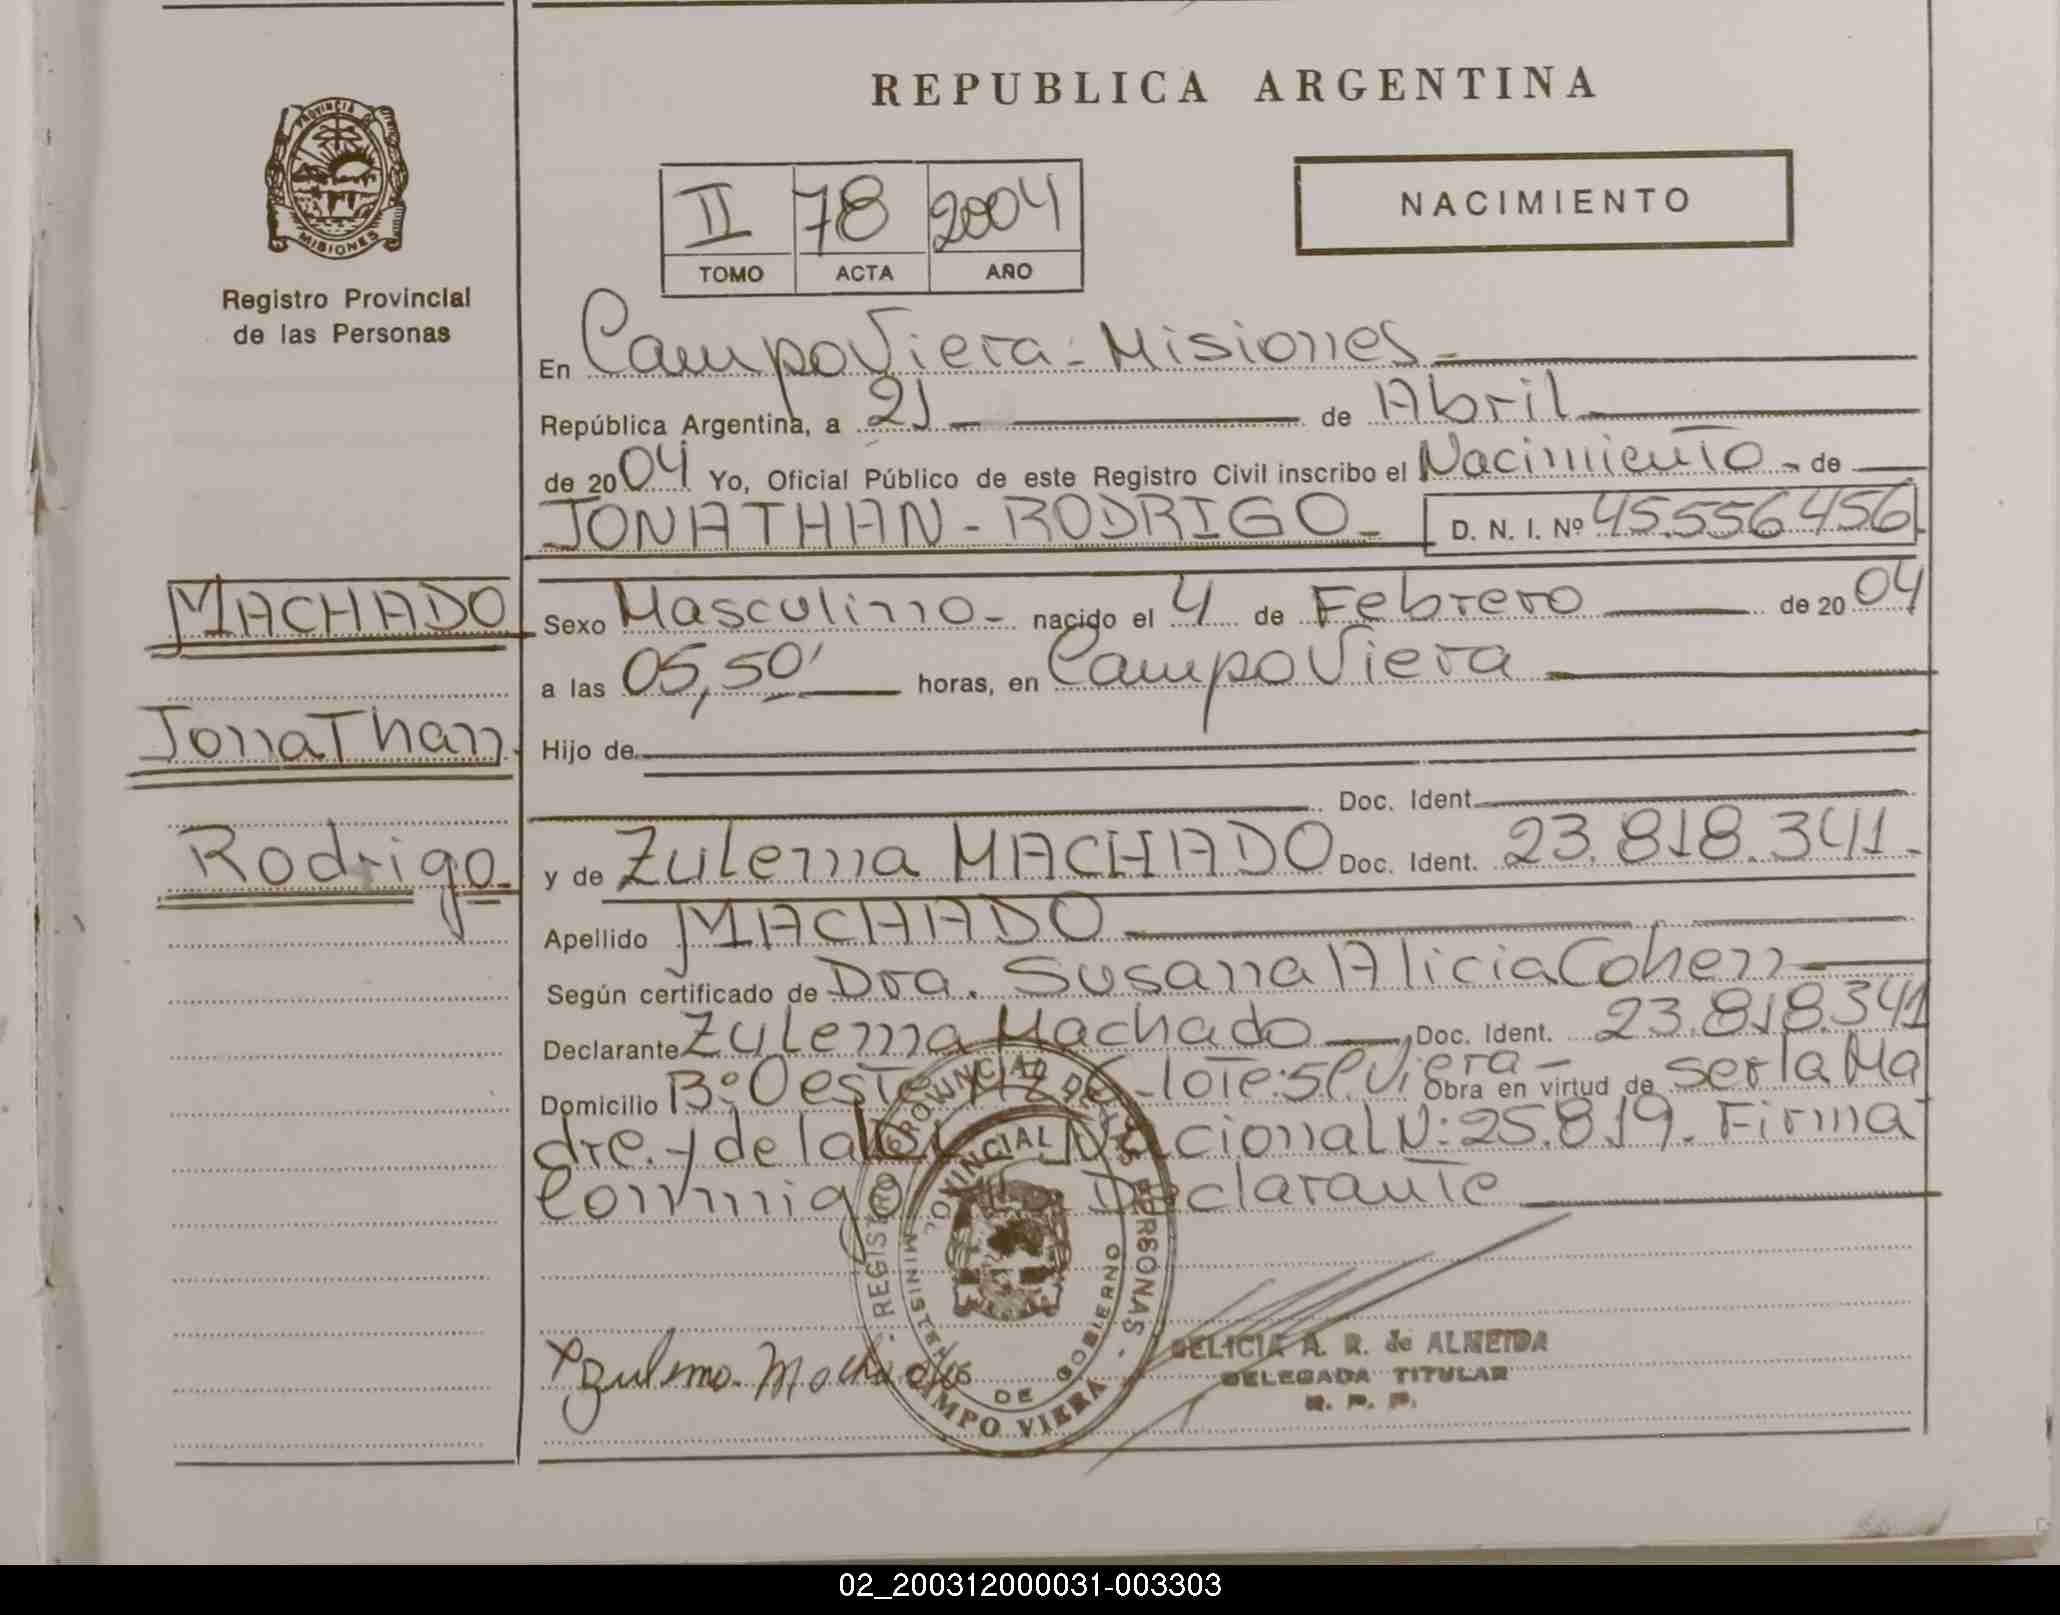 REPUBLICA ARGENTINA
PROVINCIA DE MISIONES
Registro Provincial
de las Personas
II 78 2004
TOMO ACTA AÑO
NACIMIENTO
En Campo Viera - Misiones -
República Argentina, a 21 de Abril
de 2004 Yo, Oficial Público de este Registro Civil inscribo el Nacimiento - de
JONATHAN - RODRIGO - D. N. I. Nº 45.556.456
MACHADO
Jonathan
Rodrigo
Sexo Masculino - nacido el 4 de Febrero de 2004
a las 05,50' horas, en Campo Viera
Hijo de
Doc. Ident.
y de Zulema MACHADO Doc. Ident. 23.818.341.-
Apellido MACHADO
Según certificado de Dra. Susana Alicia Cohen
Declarante Zulema Machado Doc. Ident. 23.818.341
Domicilio Bº Oeste Mz 6 - lote:5 C. Viera - Obra en virtud de ser la Ma
dre. y de la Ley Nacional N: 25.819. Firma
Conmigo la Declarante
REGISTRO PROVINCIAL DE LAS PERSONAS
MINISTERIO DE GOBIERNO
CAMPO VIERA
Zulema Machado
DELICIA A. R. de ALMEIDA
DELEGADA TITULAR
R. P. P.
02_200312000031-003303